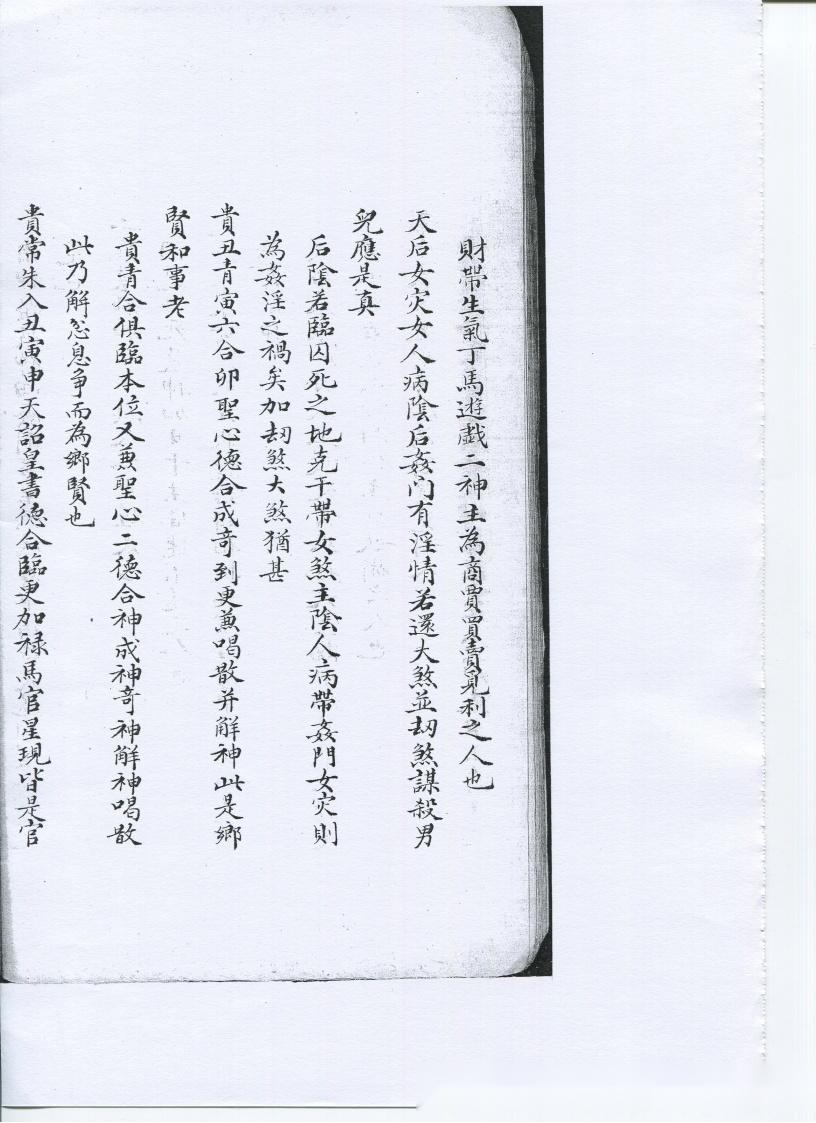 財帶生氣丁馬遊戲二神主為商賈買賣覓利之人也
天后女灾女人病陰后姦门有淫情若還大煞並刼煞謀殺男
兒應是真
后陰若臨囚死之地克干帶女煞主陰人病帶姦門女灾則
為姦淫之禍矣加刼煞大煞猶甚
貴丑青寅六合卯聖心德合成竒到更兼喝散并觧神此是鄉
賢和事老
貴青合俱臨本位又兼聖心二德合神成神竒神觧神喝散
此乃觧忿息争而為鄉賢也
貴常朱入丑寅申天詔皇書德合臨更加禄馬官星現皆是官